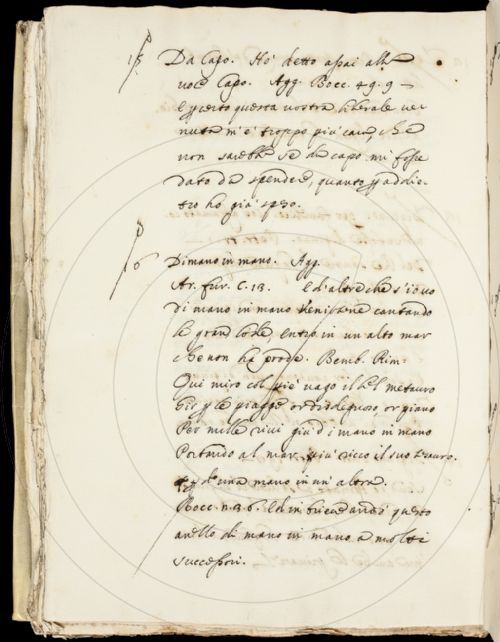 15 Da Capo. Ho' detto assai alla
voce Capo. Agg. Bocc. 49. 9 —
E certo questa vostra liberale ve-
nuta m'è troppo più cara, che
non sarebbe se di capo mi fosse
dato da spendere, quanto p addie-
tro hò già speso.
16 Dimano in mano. Agg.
Ar. fur. C. 13. E d'altre che s'io vo
di mano in mano venirtene cantando
le gran lode, entro in un alto mar
che non ha prode. Bemb. Rim=
Qui miro col piè vago il bel metauro
Gir p le piagge or disdegnoso, or piano
Per mille rivi giù di mano in mano
Portando al mar più ricco il suo tesauro.
d'una mano in un' altra.
Bocc. n. 3. 6. E di in succedendo questo
anello di mano in mano a molti
successori.